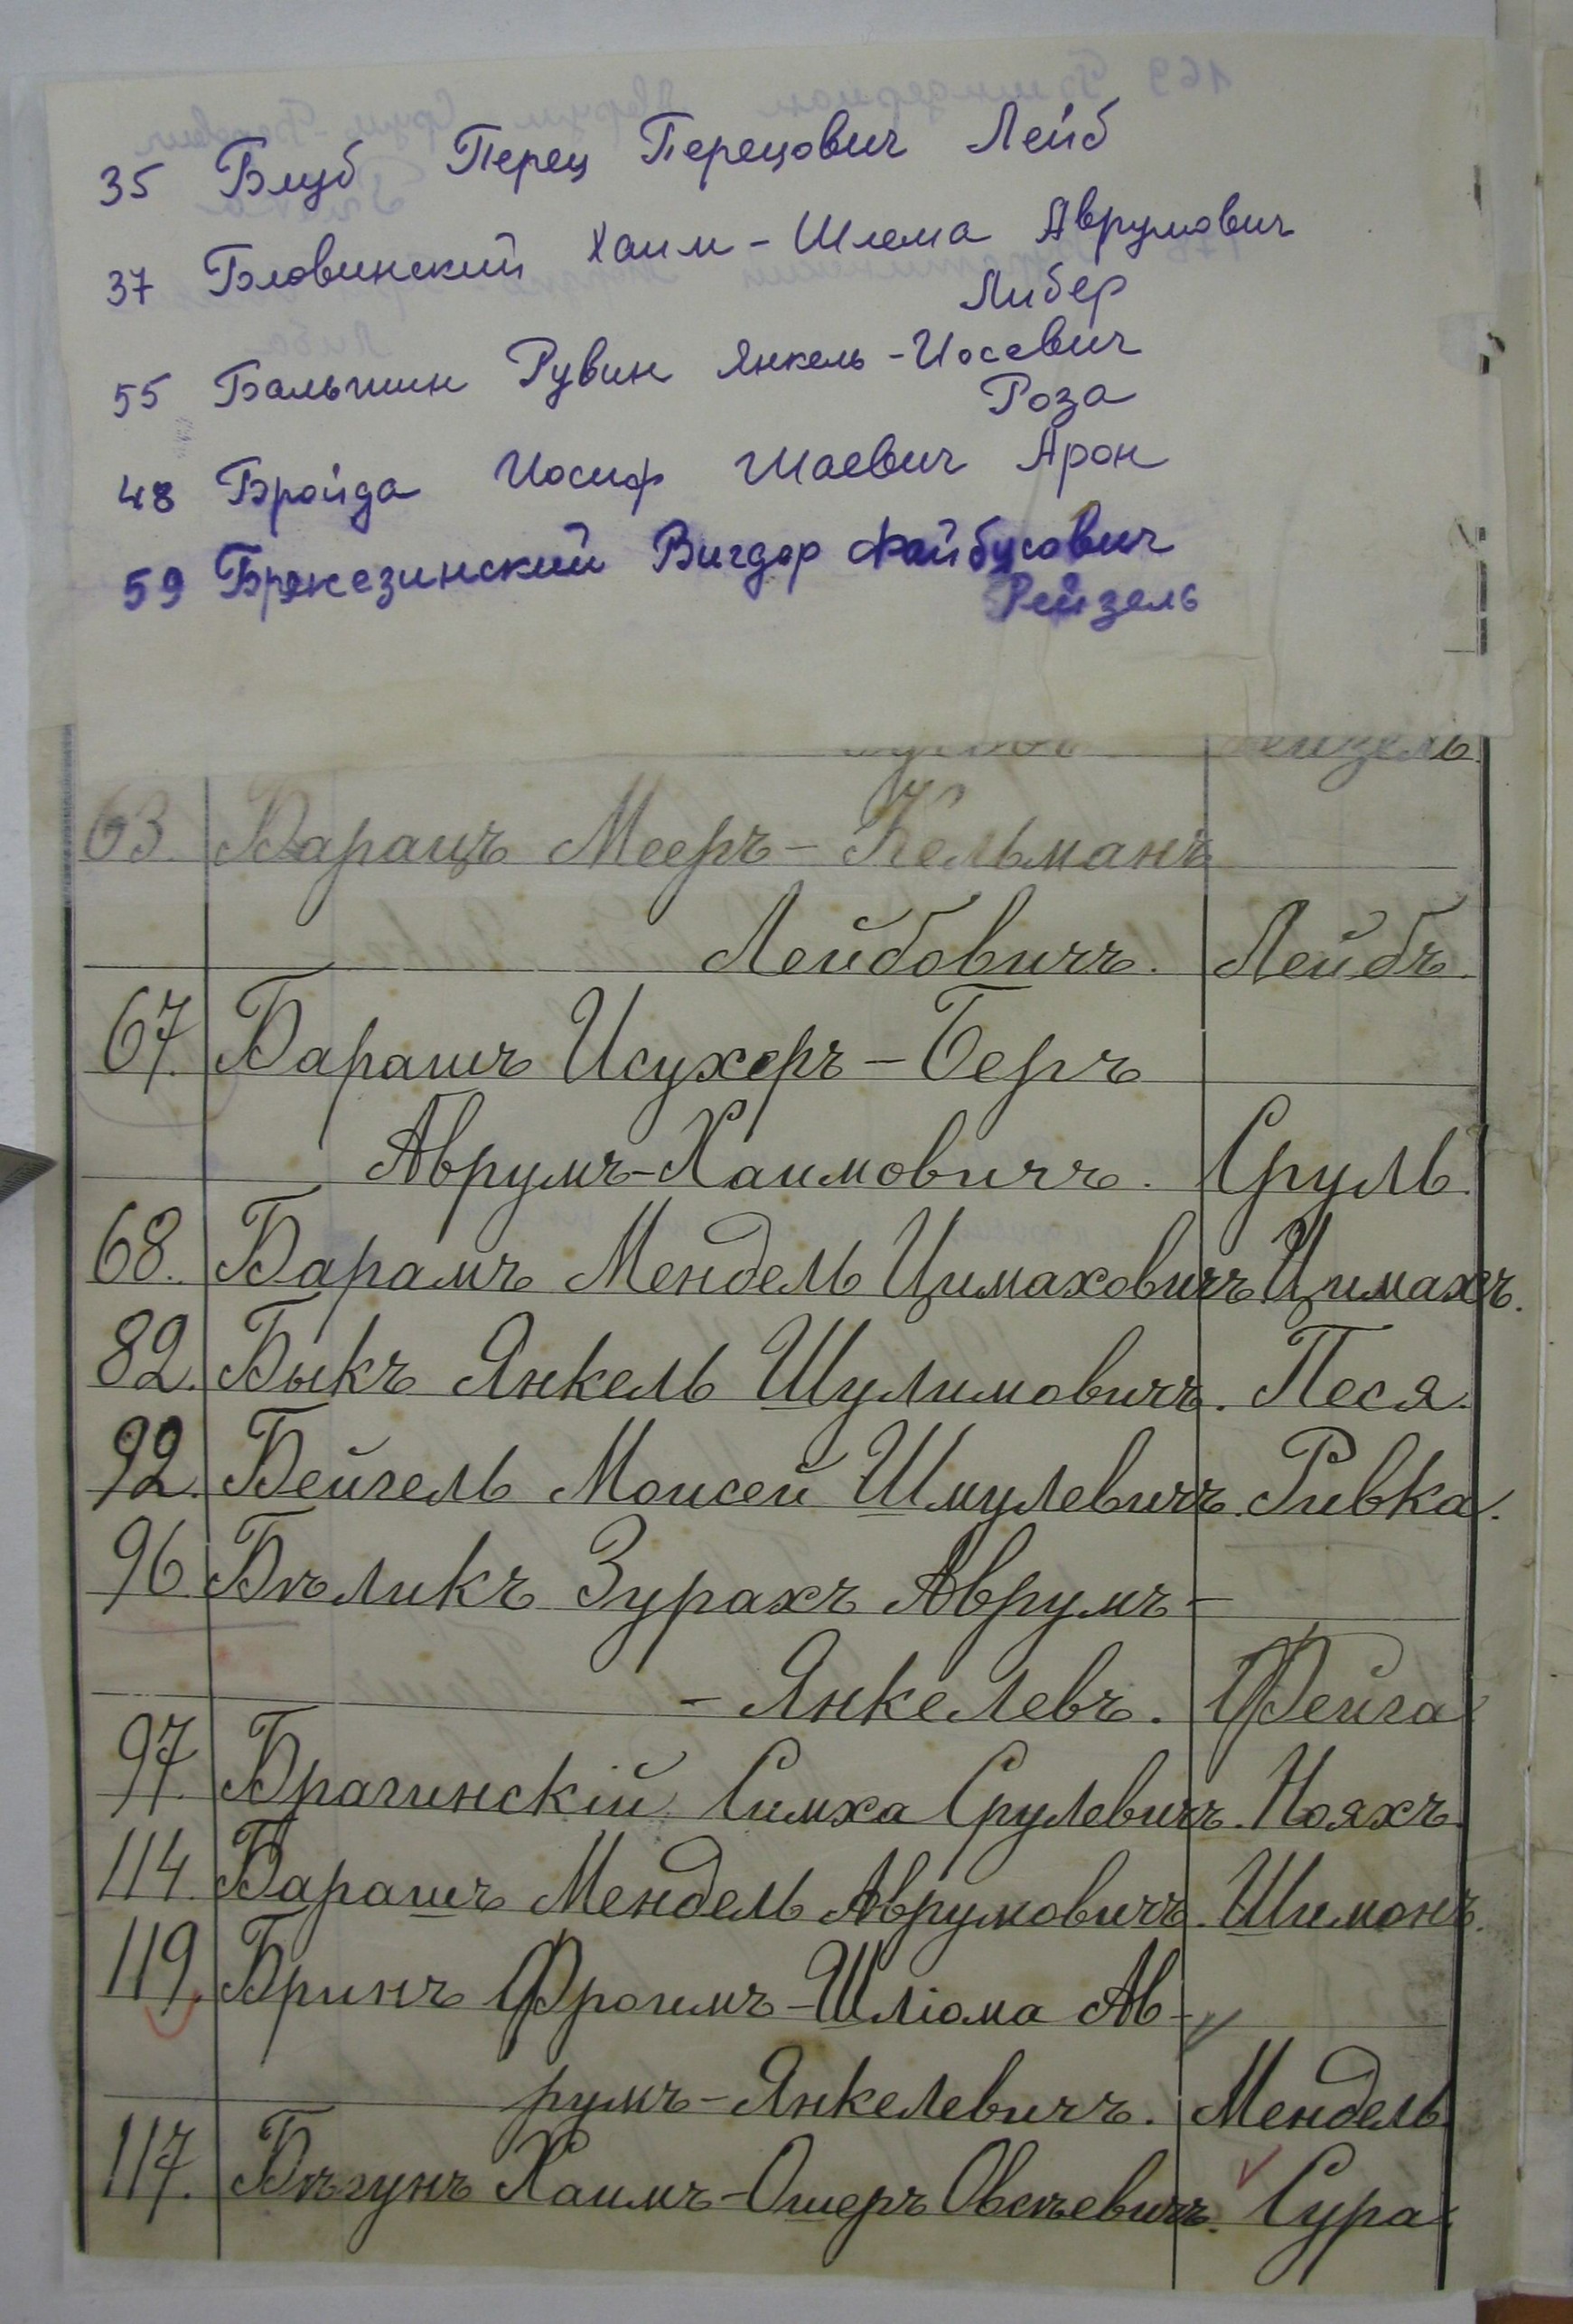 35 Блуб Перец Перецович Лейб
37 Бловинский Хаим-Шлема Аврумович
Либер
55 Бальшин Рувин Янкель-Иосевич
Роза
48 Бройда Иосиф Шаевич Арон
59 Бржезинский Вигдор Файбусович
Рейзель
63. Барацъ Мееръ-Кельманъ
Лейбовичъ. Лейбъ.
67. Барашъ Исухеръ-Беръ
Аврумъ-Хаимовичъ. Сруль.
68. Барамъ Мендель Цимаховичъ. Цимахъ.
82. Быкъ Янкель Шулимовичъ. Песя.
92. Бейгель Моисей Шмулевичъ. Ривка.
96 Бѣликъ Зурахъ Аврумъ-
-Янкелевъ. Фейга.
97. Брагинскій Симха Срулевичъ. Нояхъ.
114. Барашъ Мендель Аврумовичъ. Шимонъ.
119. Бринъ Фроимъ-Шліома Ав-
румъ-Янкелевичъ. Мендель.
117. Бѣгунъ Хаимъ-Ошеръ Овсѣевичъ. Сура.